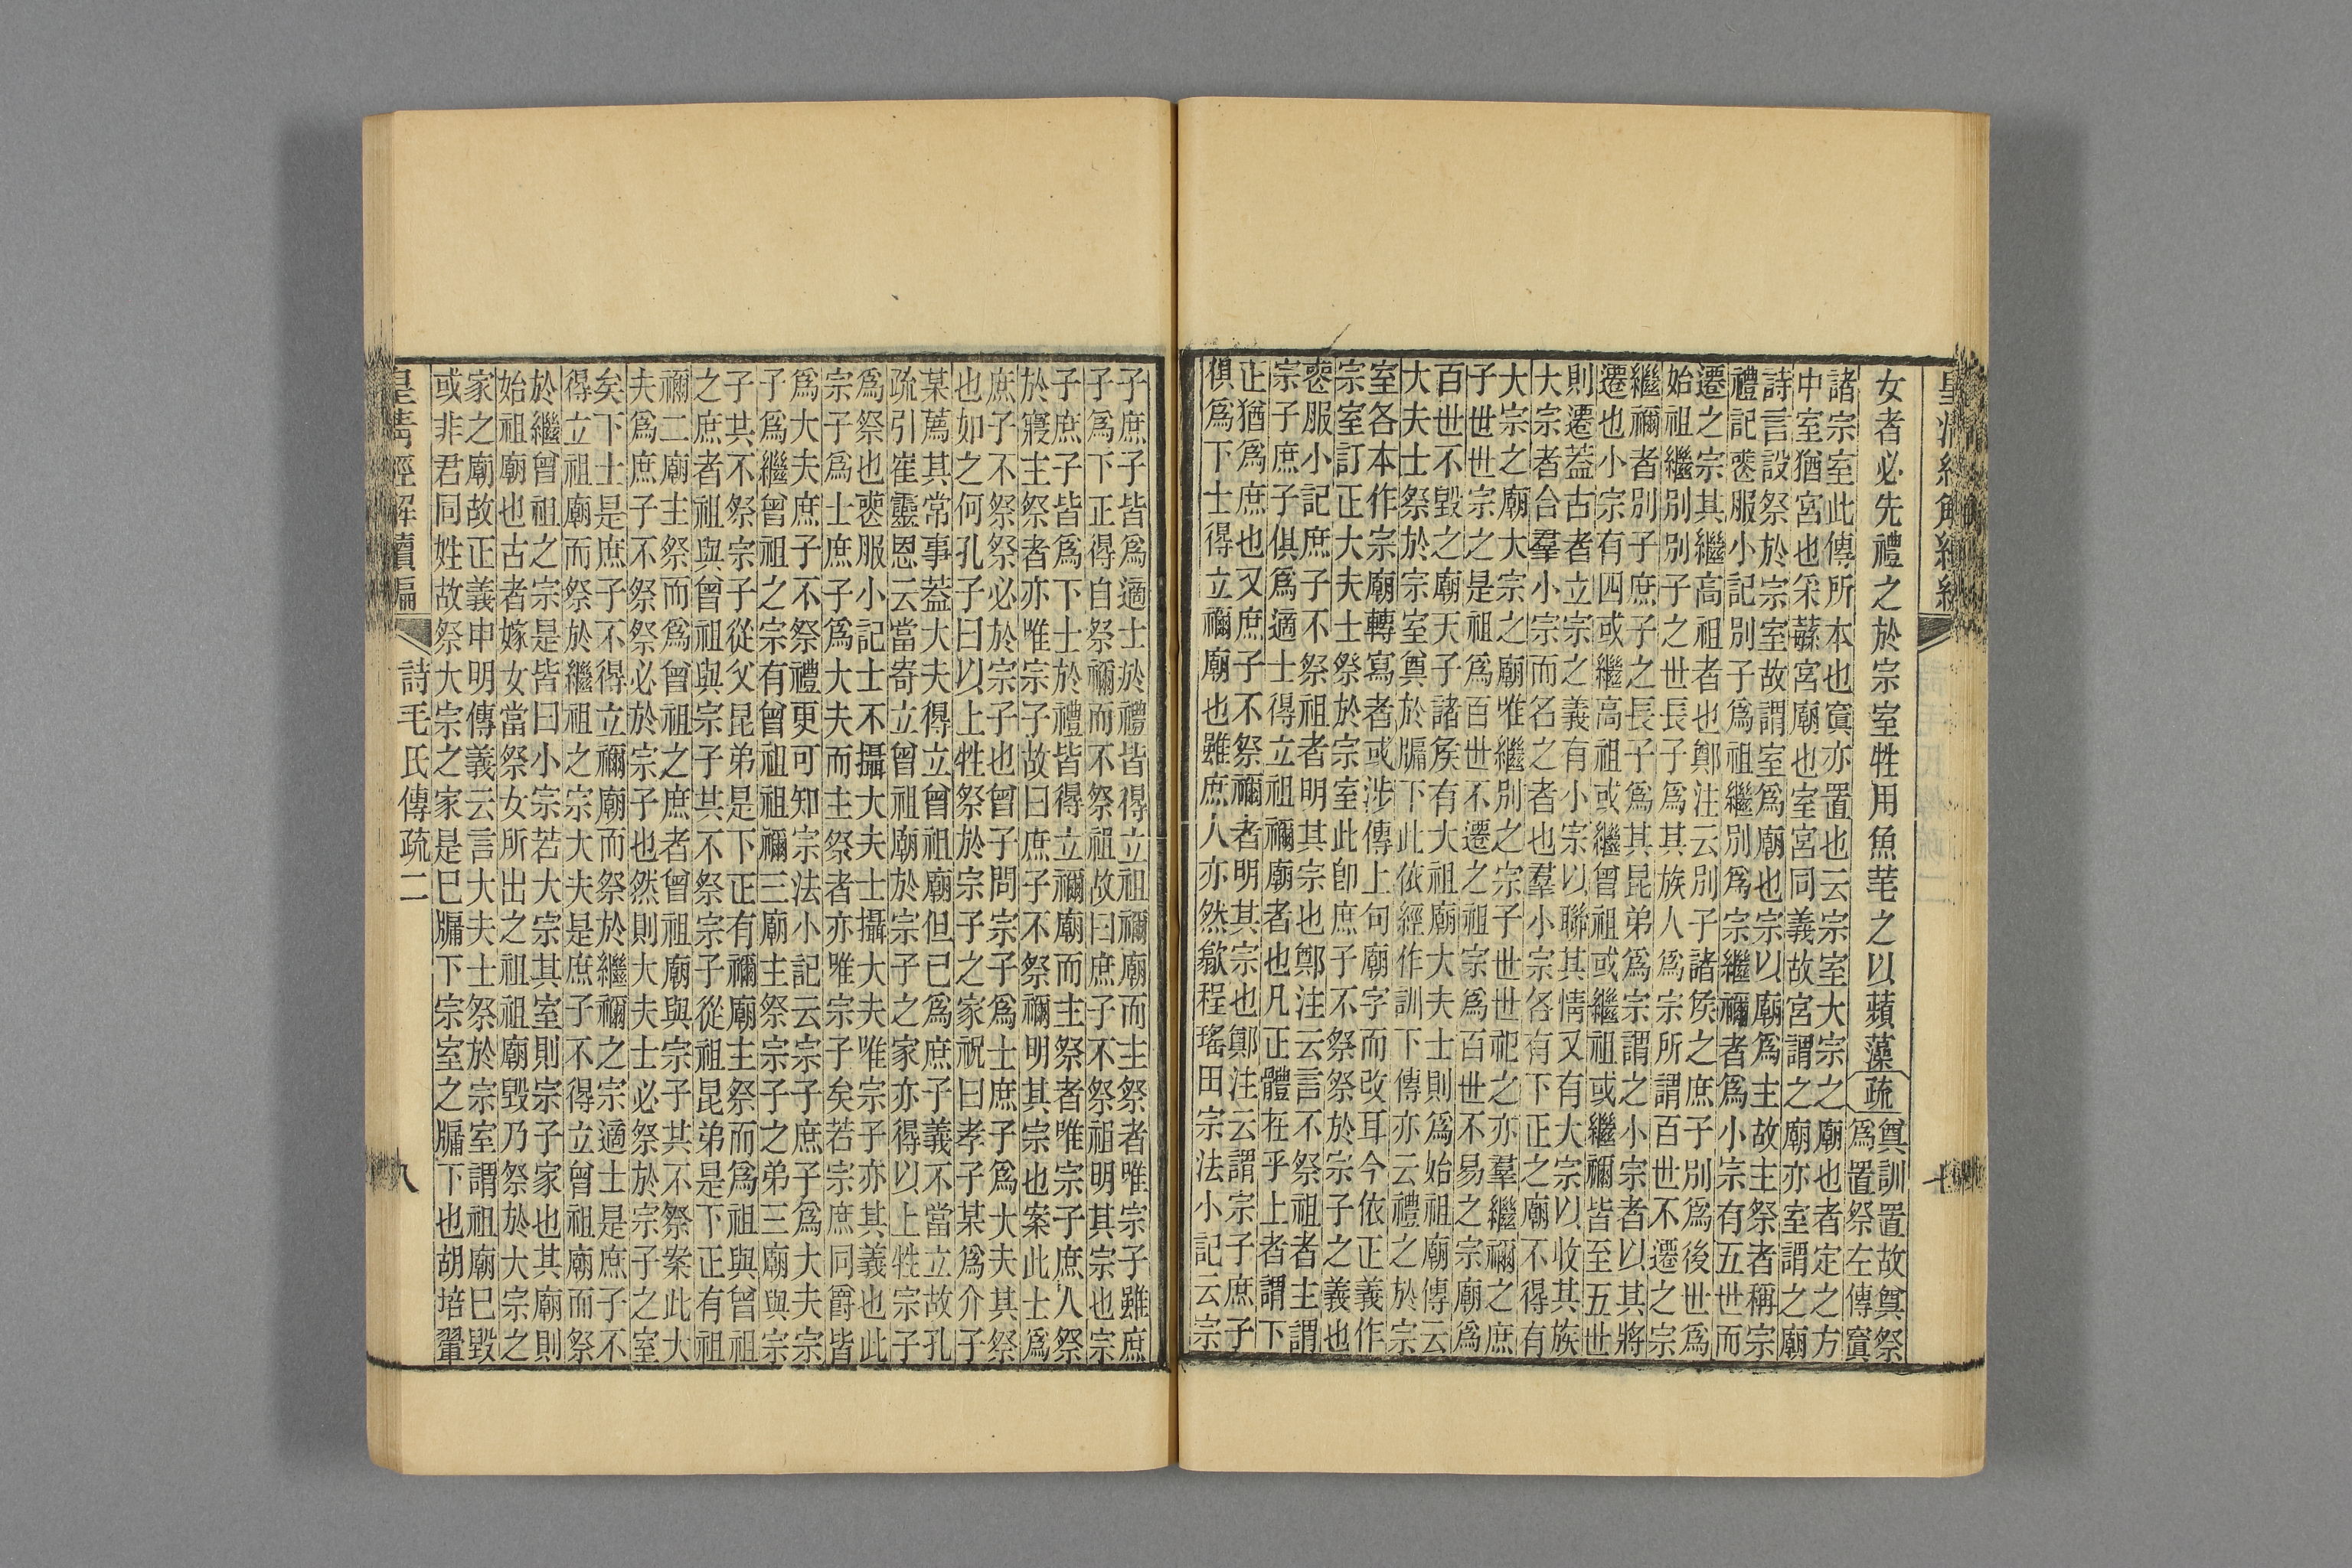 女者必先禮之於宗室牲用魚芼之以蘋藻疏奠訓置故奠祭
爲置祭左傳寘
諸宗室此傳所本也寘亦置也云宗室大宗之廟也者定之方
中室猶宮也采蘩宮廟也室宮同義故宮謂之廟亦室謂之廟
詩言設祭於宗室故謂室爲廟也宗以廟爲主故主祭者稱宗
禮記喪服小記別子爲祖繼別爲宗繼禰者爲小宗有五世而
遷之宗其繼高祖者也鄭注云別子諸矦之庶子別爲後世爲
始祖繼別別子之世長子爲其族人爲宗所謂百世不遷之宗
繼禰者別子庶子之長子爲其昆弟爲宗謂之小宗者以其將
遷也小宗有四或繼高祖或繼曾祖或繼祖或繼禰皆至五世
則遷蓋古者立宗之義有小宗以聯其情又有大宗以收其族
大宗者合羣小宗而名之者也羣小宗各有下正之廟不得有
大宗之廟大宗之廟唯繼別之宗子世世祀之亦羣繼禰之庶
子世世宗之是祖爲百世不遷之祖宗爲百世不易之宗廟爲
百世不毀之廟天子諸矦有大祖廟大夫士則爲始祖廟傳云
大夫士祭於宗室奠於牖下此依經作訓下傳亦云禮之於宗
室各本作宗廟轉寫者或涉傳上句廟字而改耳今依正義作
宗室訂正大夫士祭於宗室此卽庶子不祭祭於宗子之義也
喪服小記庶子不祭祖者明其宗也鄭注云言不祭祖者主謂
宗子庶子俱爲適士得立祖禰廟者也凡正體在乎上者謂下
正猶爲庶也又庶子不祭禰者明其宗也鄭注云謂宗子庶子
俱爲下士得立禰廟也雖庶人亦然歙程瑤田宗法小記云宗
子庶子皆爲適士於禮皆得立祖禰廟而主祭者唯宗子雖庶
子爲下正得自祭禰而不祭祖故曰庶子不祭祖明其宗也宗
子庶子皆爲下士於禮皆得立禰廟而主祭者唯宗子庶人祭
於寢主祭者亦唯宗子故曰庶子不祭禰明其宗也案此士爲
庶子不祭祭必於宗子也曾子問宗子爲士庶子爲大夫其祭
也如之何孔子曰以上牲祭於宗子之家祝曰孝子某爲介子
某薦其常事蓋大夫得立曾祖廟但已爲庶子義不當立故孔
疏引崔靈恩云當寄立曾祖廟於宗子之家亦得以上牲宗子
爲祭也喪服小記士不攝大夫士攝大夫唯宗子亦其義也此
宗子爲士庶子爲大夫而主祭者亦唯宗子矣若宗庶同爵皆
爲大夫庶子不祭禮更可知宗法小記云宗子庶子爲大夫宗
子爲繼曾祖之宗有曾祖祖禰三廟主祭宗子之弟三廟與宗
子其不祭宗子從父昆弟是下正有禰廟主祭而爲祖與曾祖
之庶者祖與曾祖與宗子其不祭宗子從祖昆弟是下正有祖
禰二廟主祭而爲曾祖之庶者曾祖廟與宗子其不祭案此大
夫爲庶子不祭祭必於宗子也然則大夫士必祭於宗子之室
矣下士是庶子不得立禰廟而祭於繼禰之宗適士是庶子不
得立祖廟而祭於繼祖之宗大夫是庶子不得立曾祖廟而祭
於繼曾祖之宗是皆曰小宗若大宗其室則宗子家也其廟則
始祖廟也古者嫁女當祭女所出之祖祖廟毀乃祭於大宗之
家之廟故正義申明傳義云言大夫士祭於宗室謂祖廟已毀
或非君同姓故祭大宗之家是已牖下宗室之牖下也胡培翬
皇清經解續編 詩毛氏傳疏二 八